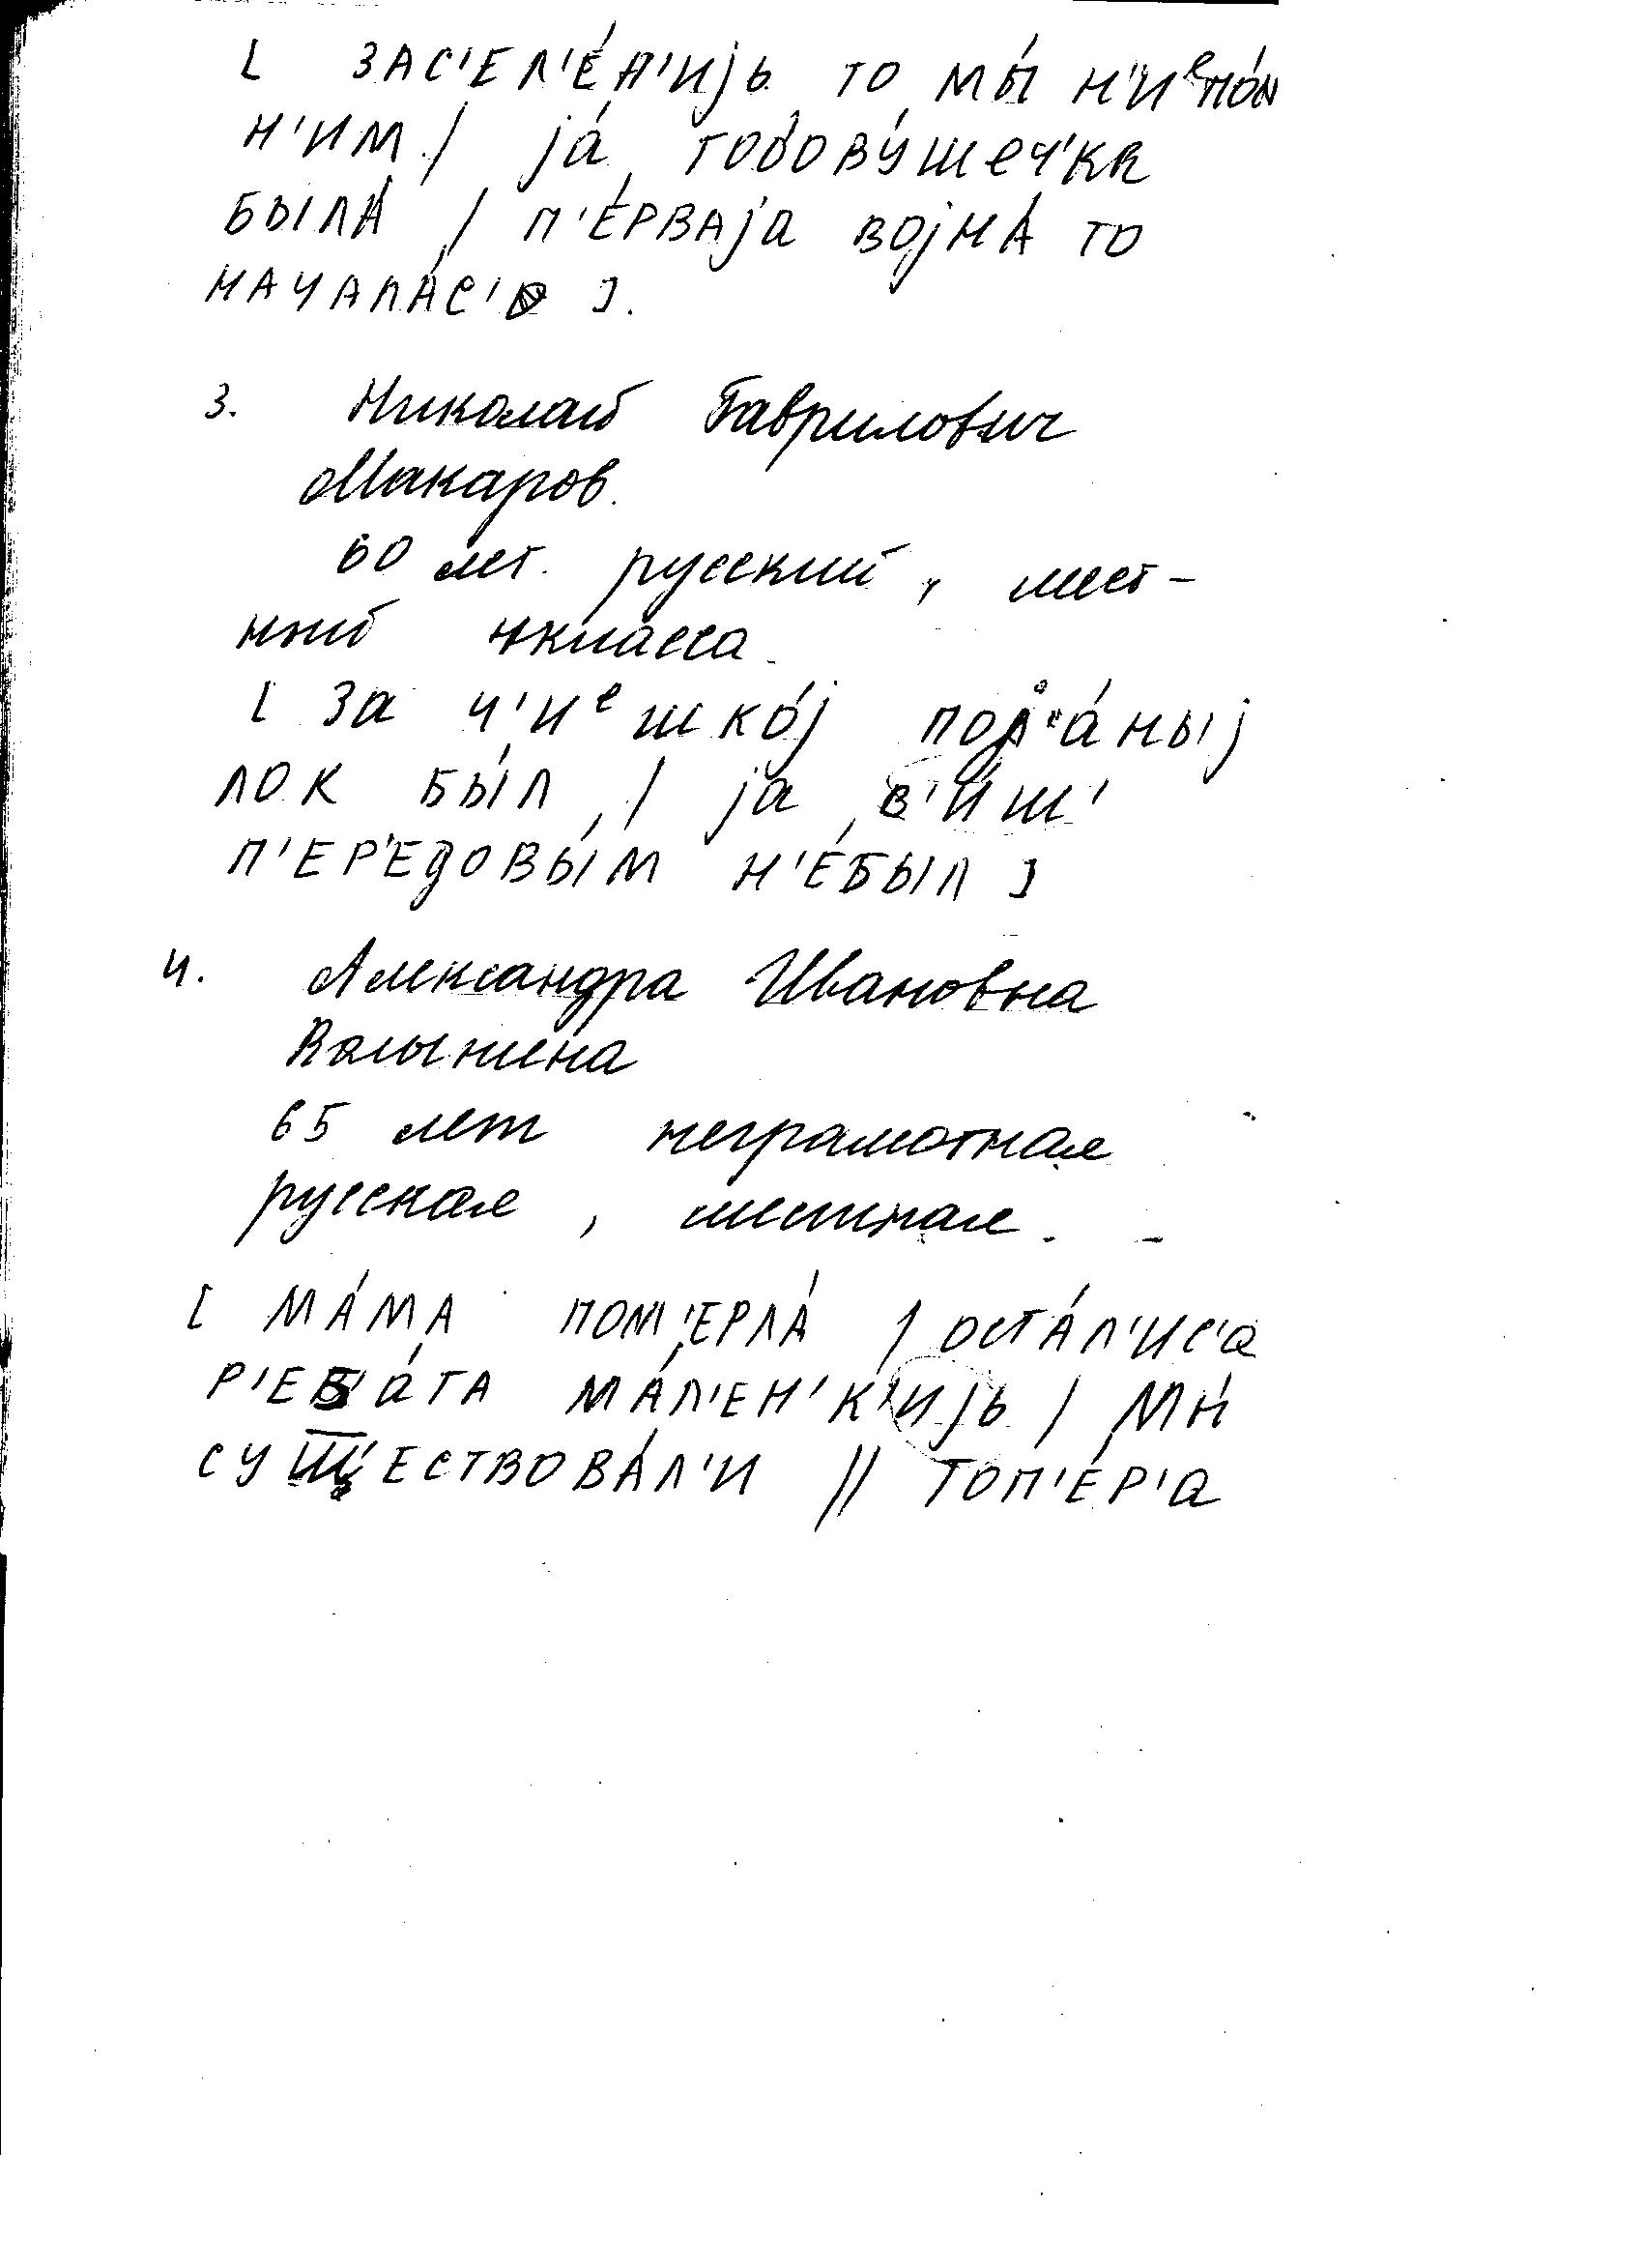 [ ЗАС'ЕЛ'Е́Н'ИJЬ ТО МЫ́ Н'ИᵉПО́М
Н'ИМ / jа́ ТОбОВУ́ШЕЧ'КА
БЫЛА́ / П'Е́РВАjА ВОjНА́ ТО
НАЧАЛА́С' ].
3. Николай Гаврилович
Макаров.
60 лет. русский, мест-
ный 4 класса.
[ За Ч'Иᵉ ШКО́j ПОЛ'а́НЫj
ЛОК БЫ́Л / ja В'И́Ш'
П'ЕР'ЕДОВЫ́М Н'Е́БЫЛ ]
4. Александра Ивановна
65 лет неграмотная
русская, местная.
[ МА́МА ПОМ'ЕРЛА́ / ОСТА́Л'ИС'а
Р'ЕБ'а́ТА МА́Л'ЕН'К'ИjЬ / МЫ́
СУЩЕСТВОВА́Л'И // ТОП'Е́Р'а